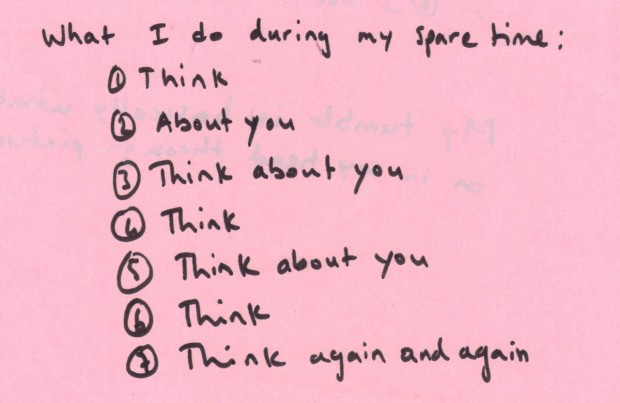 What I do during my spare time:
① Think
② About you
③ Think about you
④ Think
⑤ Think about you
⑥ Think
⑦ Think again and again